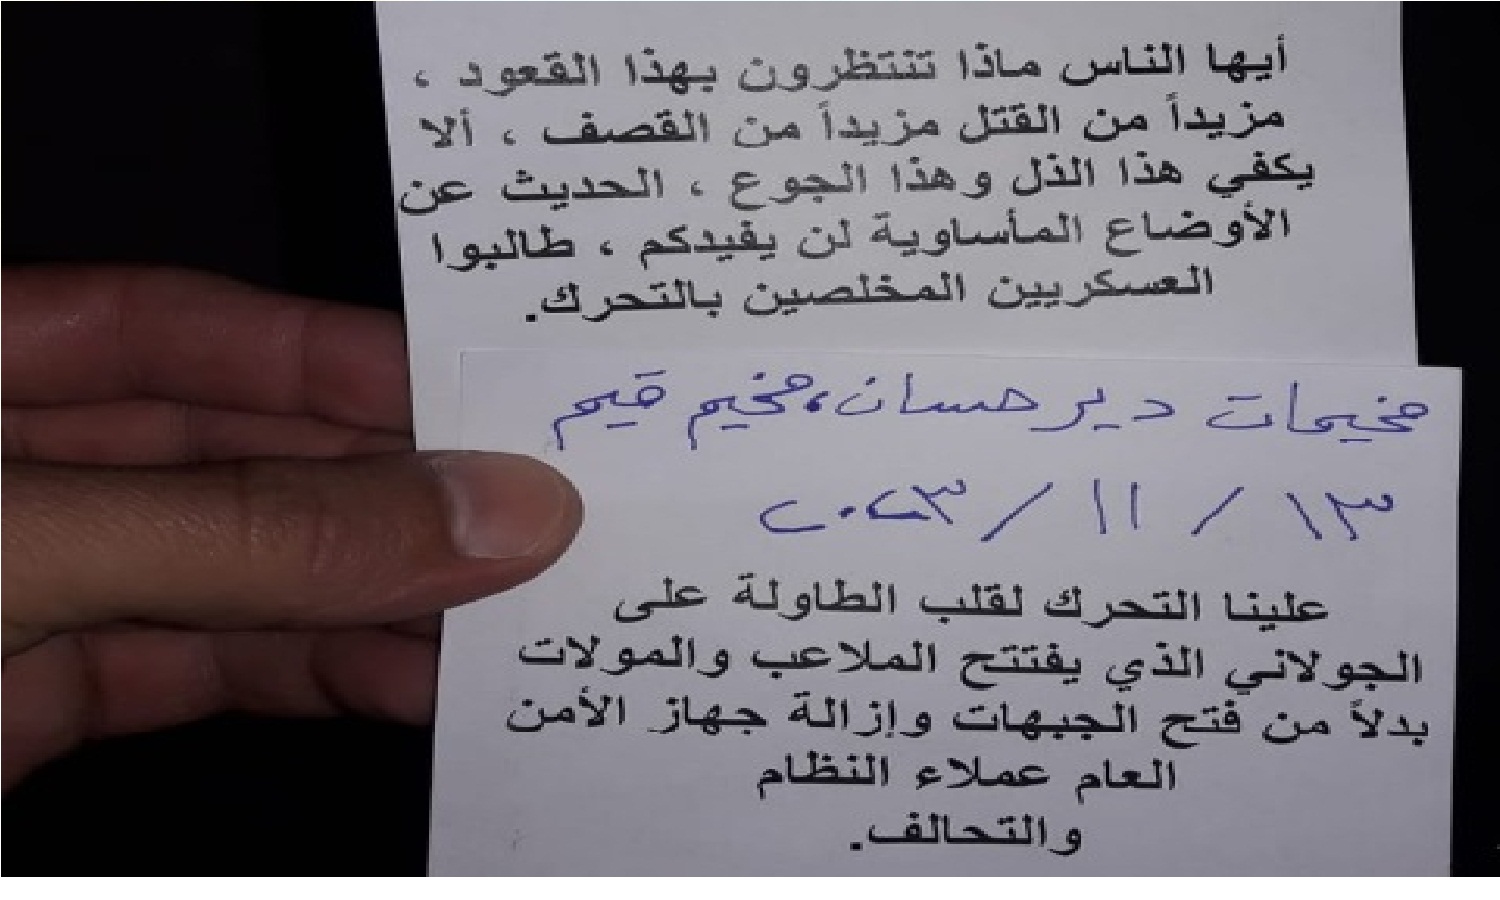 أيها الناس ماذا تنتظرون بهذا القعود ،
مزيداً من القتل مزيداً من القصف ، ألا
يكفي هذا الذل وهذا الجوع ، الحديث عن
الأوضاع المأساوية لن يفيدكم ، طالبوا
العسكريين المخلصين بالتحرك.
مخيمات دير حسان، مخيم قيم
١٣ / ١١ / ٢٠٢٣
علينا التحرك لقلب الطاولة على
الجولاني الذي يفتتح الملاعب والمولات
بدلاً من فتح الجبهات وإزالة جهاز الأمن
العام عملاء النظام
والتحالف.